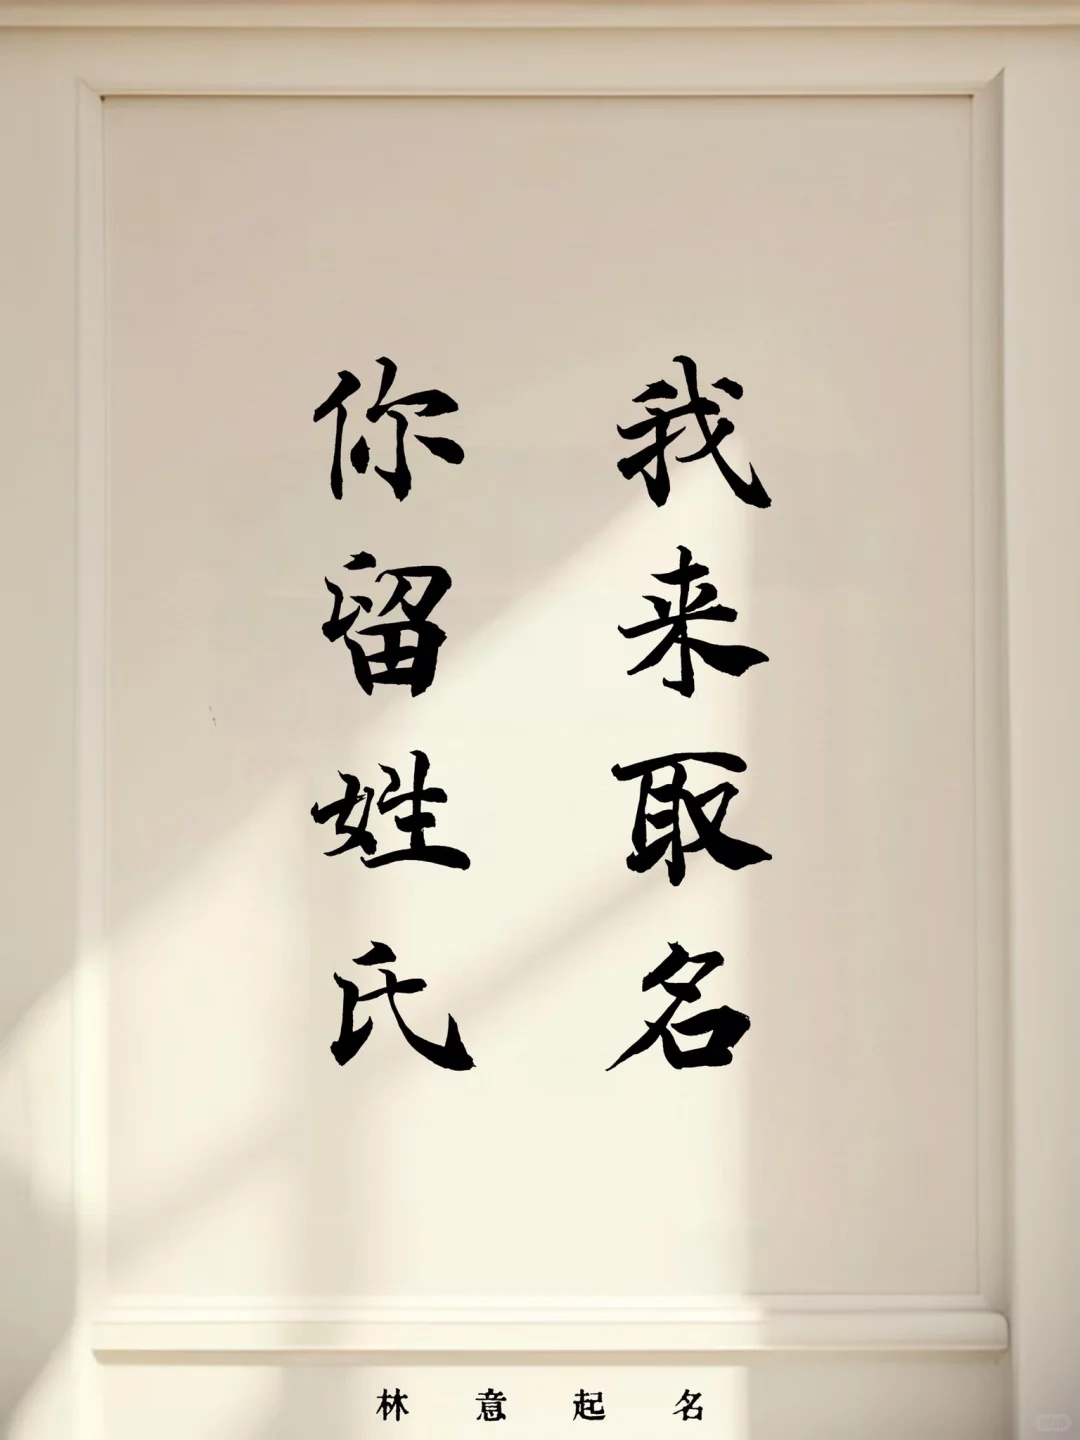 你留姓氏
我来取名
林意起名